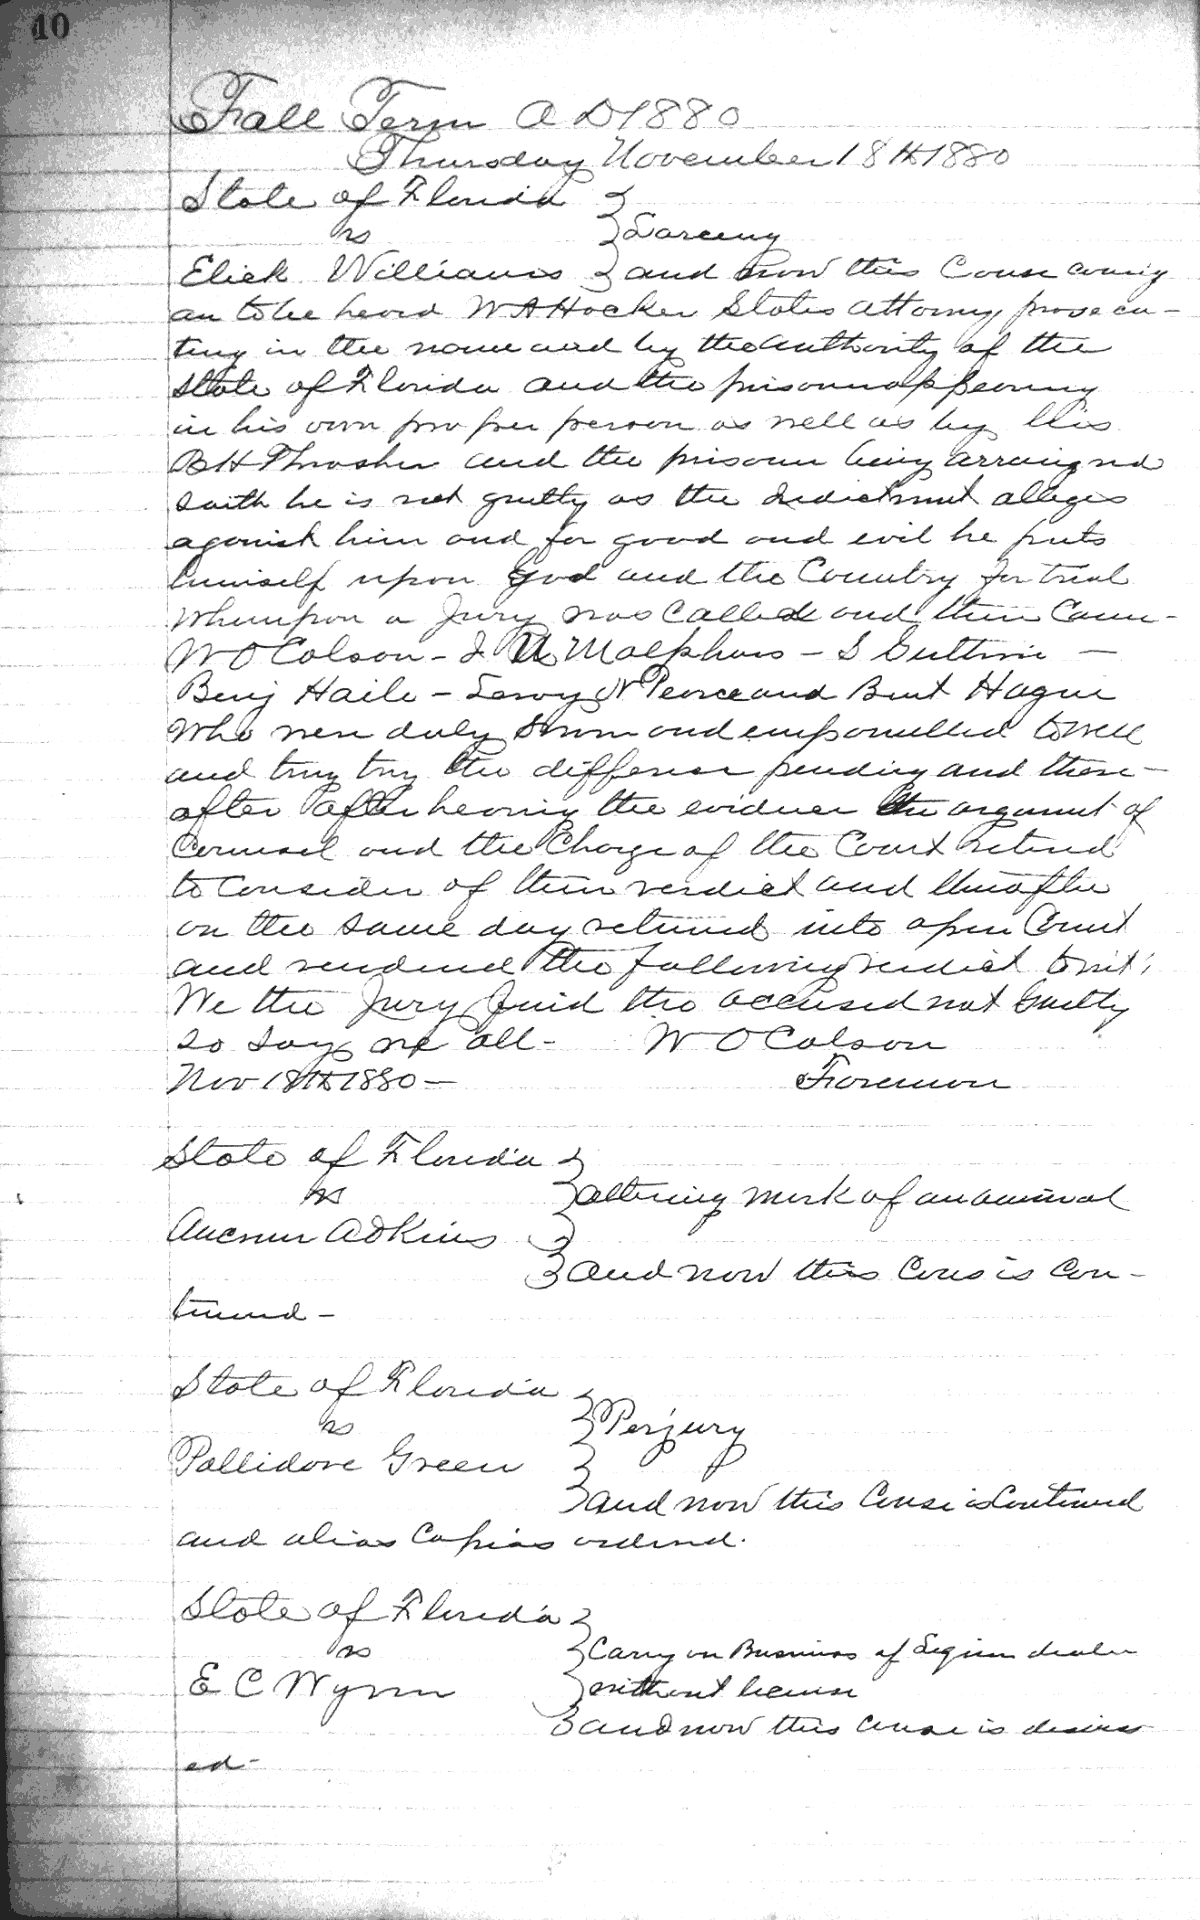 40
Fall Term A D 1880
Thursday November 18th 1880
State of Florida }
vs } Larceny
Elick Williams } and now this Cause coming
on to be heard W A Hocker States Attorney prosecu-
ting in the name and by the authority of the
State of Florida and the prisoner appearing
in his own proper person as well as by his
B H Thrasher and the prisoner being arraigned
saith he is not guilty as the Indictment alleges
against him and for good and evil he puts
himself upon God and the Country for trial
Whereupon a Jury was called and then Came -
W O Colson - J Malphurs - S Guthrie -
Benj Haile - Leroy W Pearce and Burt Hague
Who were duly sworn and empanelled to well
and truly try the difference pending and there-
after after hearing the evidence the argument of
Counsel and the Charge of the Court retired
to consider of their verdict and thereafter
on the same day returned into open Court
and rendered the following verdict to wit;
We the Jury find the accused not Guilty
so say we all - W O Colson
Nov 18th 1880 - Foreman
State of Florida }
vs } altering mark of an animal
Adkins }
} and now this Cause is con-
tinued -
State of Florida }
vs } Perjury
Pallidore Green }
} and now this Cause is Continued
and alias Capias ordered.
State of Florida }
vs } Carry on Business of Liquor dealer
E C Wynn } without license
} and now this cause is dismiss
ed -